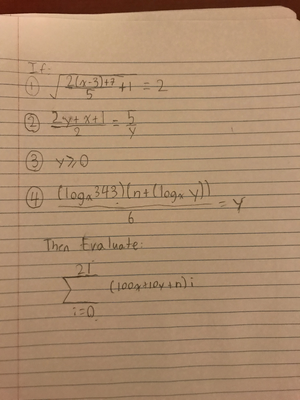 If:
① √(2(x-3)+7)/5 + 1 = 2
② (2y+x+1)/2 = 5/y
③ y≥0
④ ((logₓ343)(n+(logₓ y)))/6 = y
Then Evaluate:
21
∑ (100x+10y+n)i
i=0